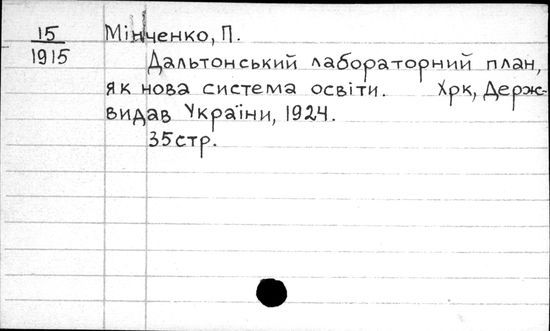 15 Мінченко, П.
1915
Дальтонський лабораторний план,
як нова система освіти. Хрк, Держ-
видав України, 1924.
35стр.